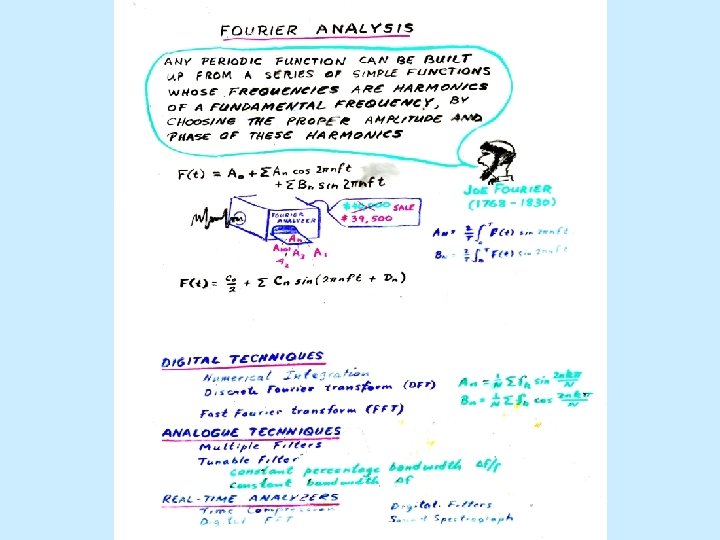 FOURIER ANALYSIS
ANY PERIODIC FUNCTION CAN BE BUILT
UP FROM A SERIES OF SIMPLE FUNCTIONS
WHOSE FREQUENCIES ARE HARMONICS
OF A FUNDAMENTAL FREQUENCY, BY
CHOOSING THE PROPER AMPLITUDE AND
PHASE OF THESE HARMONICS
F(t) = A₀ + ΣAₙ cos 2πnft
+ ΣBₙ sin 2πnft
JOE FOURIER
(1768-1830)
FOURIER
ANALYZER
SALE
$39,500
Aₙ
A₃ A₁
A₂
Aₙ = 2/T ∫₀ᵀ F(t) sin 2πnft
Bₙ = 2/T ∫₀ᵀ F(t) sin 2πnft
F(t) = C₀/2 + Σ Cₙ sin(2πnft + Dₙ)
DIGITAL TECHNIQUES
Numerical Integration
Discrete Fourier transform (DFT)
Fast Fourier transform (FFT)
Aₙ = 1/N Σ fₖ sin 2nkπ/N
Bₙ = 1/N Σ fₖ cos 2nkπ/N
ANALOGUE TECHNIQUES
Multiple Filters
Tunable Filter
constant percentage bandwidth Δf/f
constant bandwidth Δf
REAL-TIME ANALYZERS
Time Compression
Digital FFT
Digital Filters
Sound Spectrograph